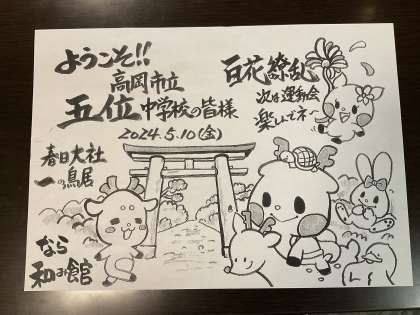 ようこそ!!
高岡市立
五位中学校の皆様
2024.5.10(金)
百花繚乱
次は運動会
楽しんでネ
春日大社
一の鳥居
なら
和み館